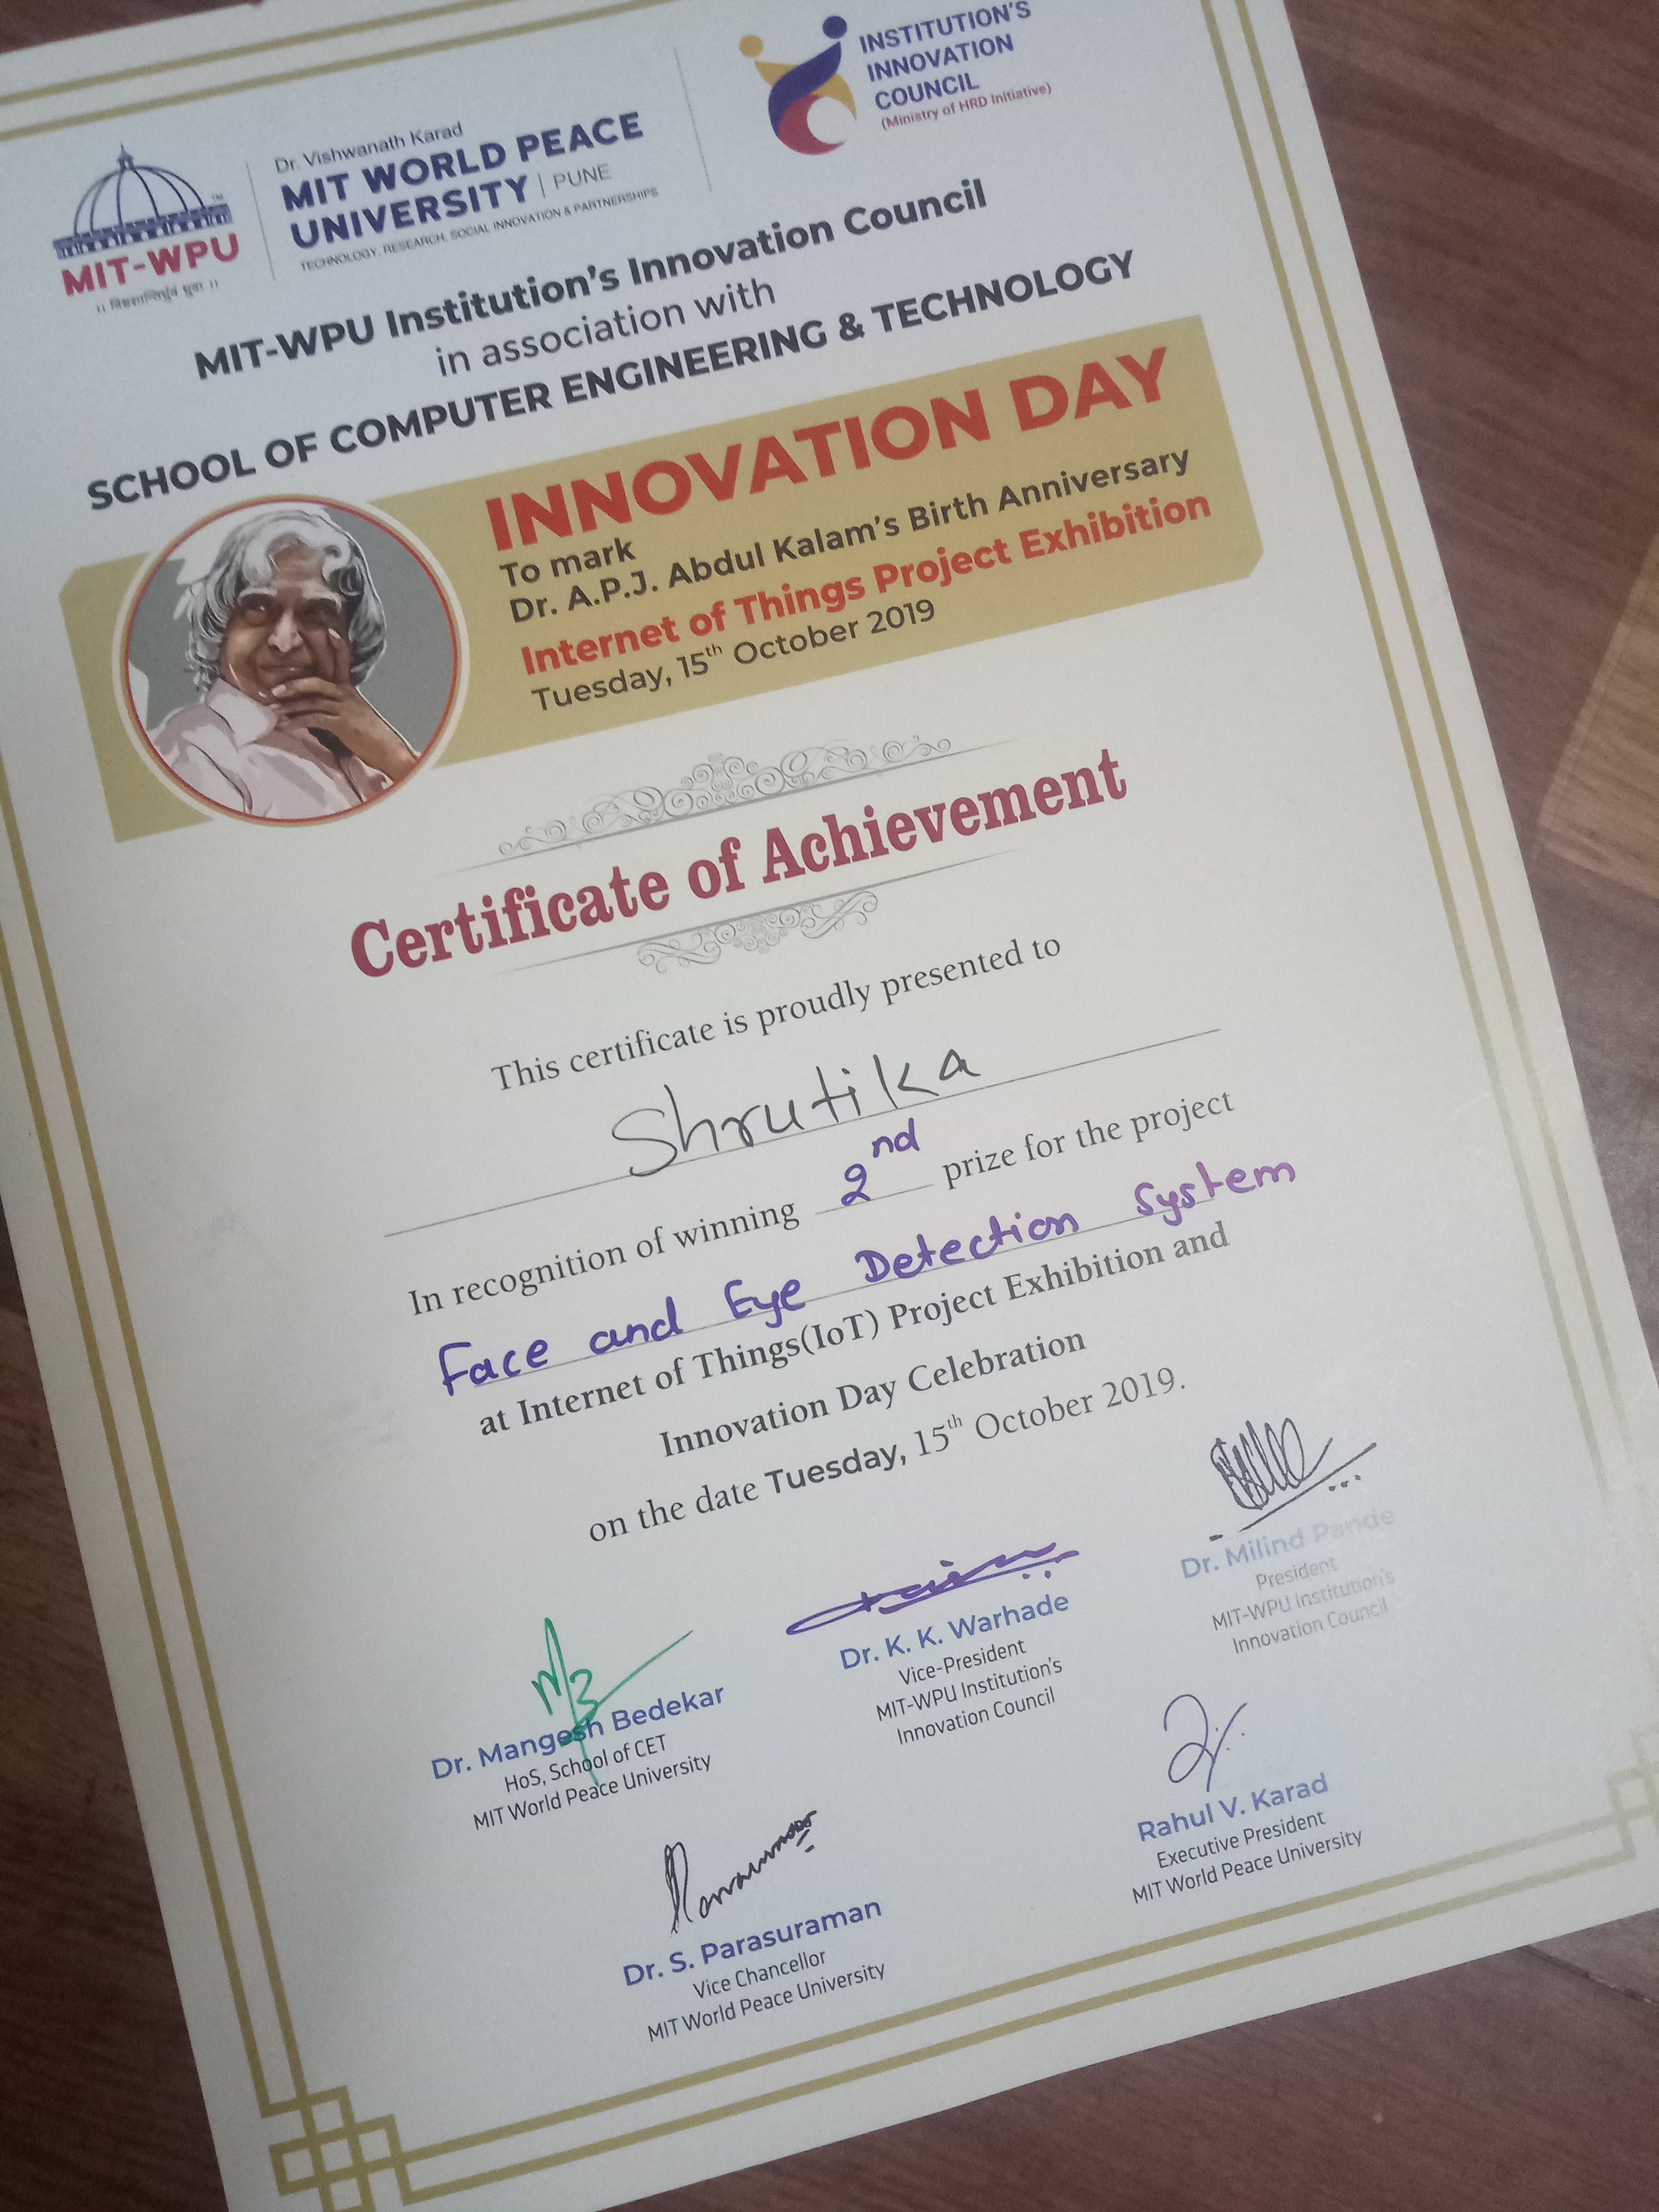 Dr. Vishwanath Karad
MIT WORLD PEACE
UNIVERSITY | PUNE
TECHNOLOGY, RESEARCH, SOCIAL INNOVATION & PARTNERSHIPS
TM
MIT-WPU
INSTITUTION'S
INNOVATION
COUNCIL
(Ministry of HRD Initiative)
MIT-WPU Institution's Innovation Council
in association with
SCHOOL OF COMPUTER ENGINEERING & TECHNOLOGY
INNOVATION DAY
To mark
Dr. A.P.J. Abdul Kalam's Birth Anniversary
Internet of Things Project Exhibition
Tuesday, 15th October 2019
Certificate of Achievement
This certificate is proudly presented to
Shrutika
In recognition of winning 2nd prize for the project
Face and Eye Detection System
at Internet of Things(IoT) Project Exhibition and
Innovation Day Celebration
on the date Tuesday, 15th October 2019.
Dr. Mangesh Bedekar
HoS, School of CET
MIT World Peace University
Dr. K. K. Warhade
Vice-President
MIT-WPU Institution's
Innovation Council
Dr. Milind Pande
President
MIT-WPU Institution's
Innovation Council
Dr. S. Parasuraman
Vice Chancellor
MIT World Peace University
Rahul V. Karad
Executive President
MIT World Peace University